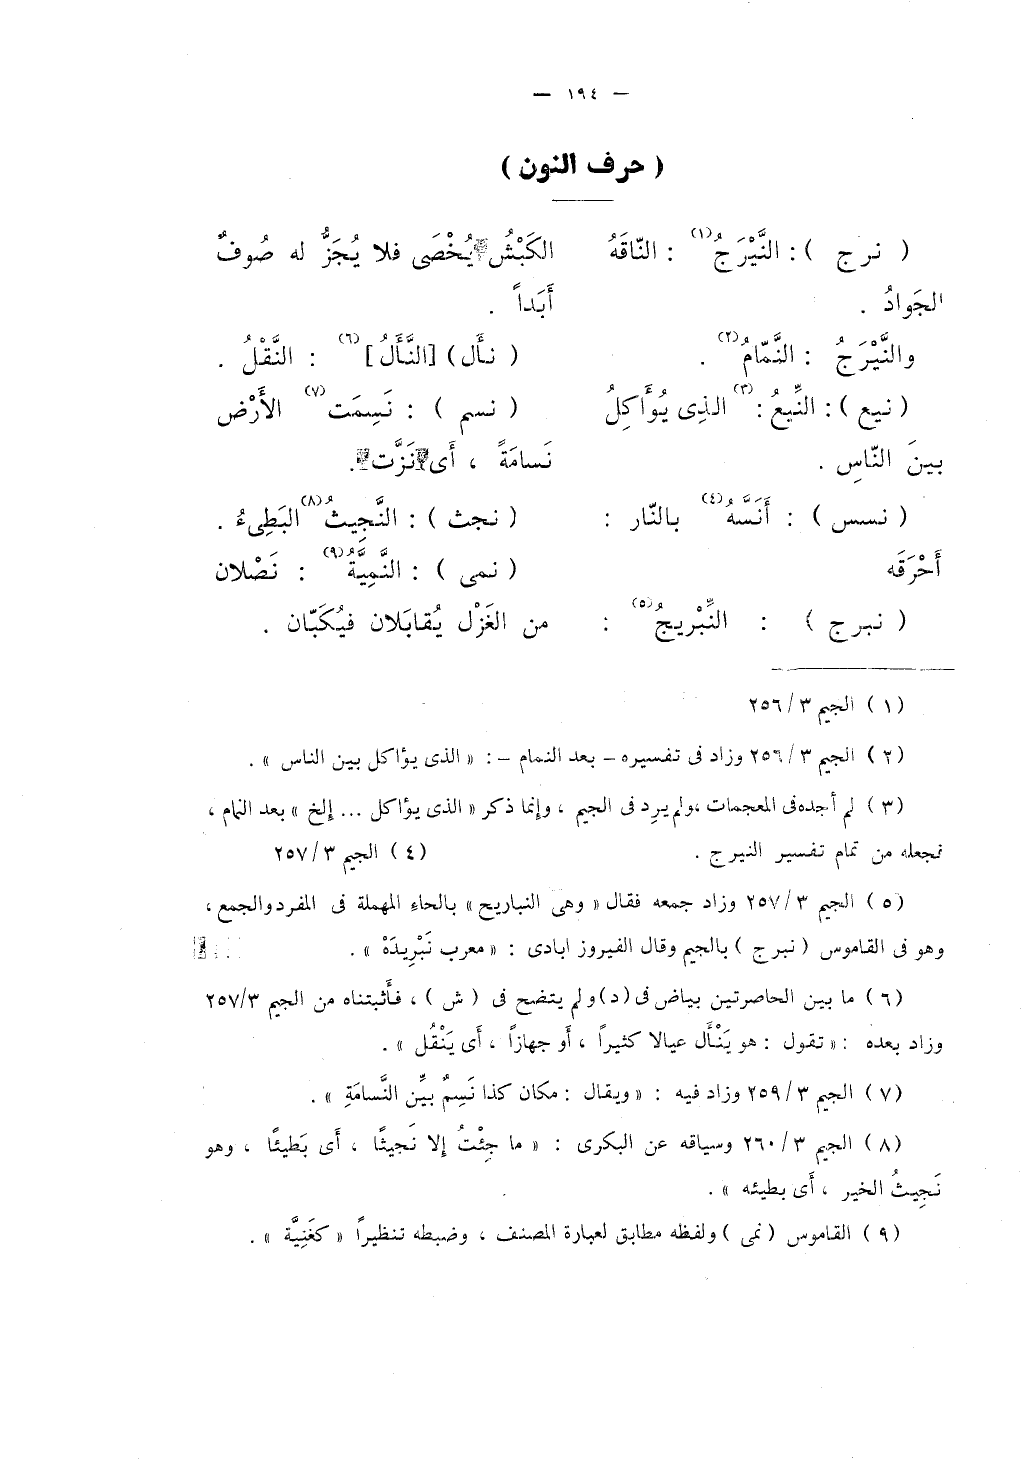 — ١٩٤ —
( حرف النون )
( نرج ) : النَّيْرَجُ(١) : النّاقَهُ
الجَوادُ .
والنَّيْرَجُ : النَّمّامُ(٢) .
( نيع ) : النِّيعُ(٣) : الذِى يُؤَاكِلُ
بينَ النّاسِ .
( نسس ) : أَنَسَّهُ(٤) بالنّار :
أَحْرَقَه
( نبرج ) : النِّبْرِيجُ(٥) :
الكَبْشُ يُخْصَى فلا يُجَزُّ له صُوفٌ
أَبَداً .
( نأل ) [النَّأَلُ](٦) : النَّقْلُ .
( نسم ) : نَسِمَت(٧) الأَرْض
نَسامَةً ، أَى نَزَّت .
( نجث ) : النَّجِيثُ(٨) البَطِىءُ .
( نمى ) : النَّمِيَّةُ(٩) : نَصْلان
من الغَزْل يُقابَلان فيُكَبّان .
( ١ ) الجيم ٣ / ٢٥٦
( ٢ ) الجيم ٣ / ٢٥٦ وزاد فى تفسيره – بعد النمام – : « الذى يؤاكل بين الناس » .
( ٣ ) لم أجده فى المعجمات ، ولم يرد فى الجيم ، وإنما ذكر « الذى يؤاكل ... إلخ » بعد النمام ،
فجعله من تمام تفسير النيرج . ( ٤ ) الجيم ٣ / ٢٥٧
( ٥ ) الجيم ٣ / ٢٥٧ وزاد جمعه فقال « وهى النباريح » بالحاء المهملة فى المفرد والجمع ،
وهو فى القاموس ( نبرج ) بالجيم وقال الفيروز ابادى : « معرب نَبْرِيدَهْ » .
( ٦ ) ما بين الحاصرتين بياض فى ( د ) ولم يتضح فى ( ش ) ، فأَثبتناه من الجيم ٢٥٧/٣
وزاد بعده : « تقول : هو يَنْأَل عيالا كثيراً ، أَو جهازاً ، أَى يَنْقُل » .
( ٧ ) الجيم ٣ / ٢٥٩ وزاد فيه : « ويقال : مكان كذا نَسِمٌ بيِّن النَّسامَةِ » .
( ٨ ) الجيم ٣ / ٢٦٠ وسياقه عن البكرى : « ما جِئْتُ إلا نَجيثًا ، أَى بَطيئًا ، وهو
نَجِيثُ الخير ، أَى بطيئه » .
( ٩ ) القاموس ( نمى ) ولفظه مطابق لعبارة المصنف ، وضبطه تنظيراً « كغَنِيَّة » .